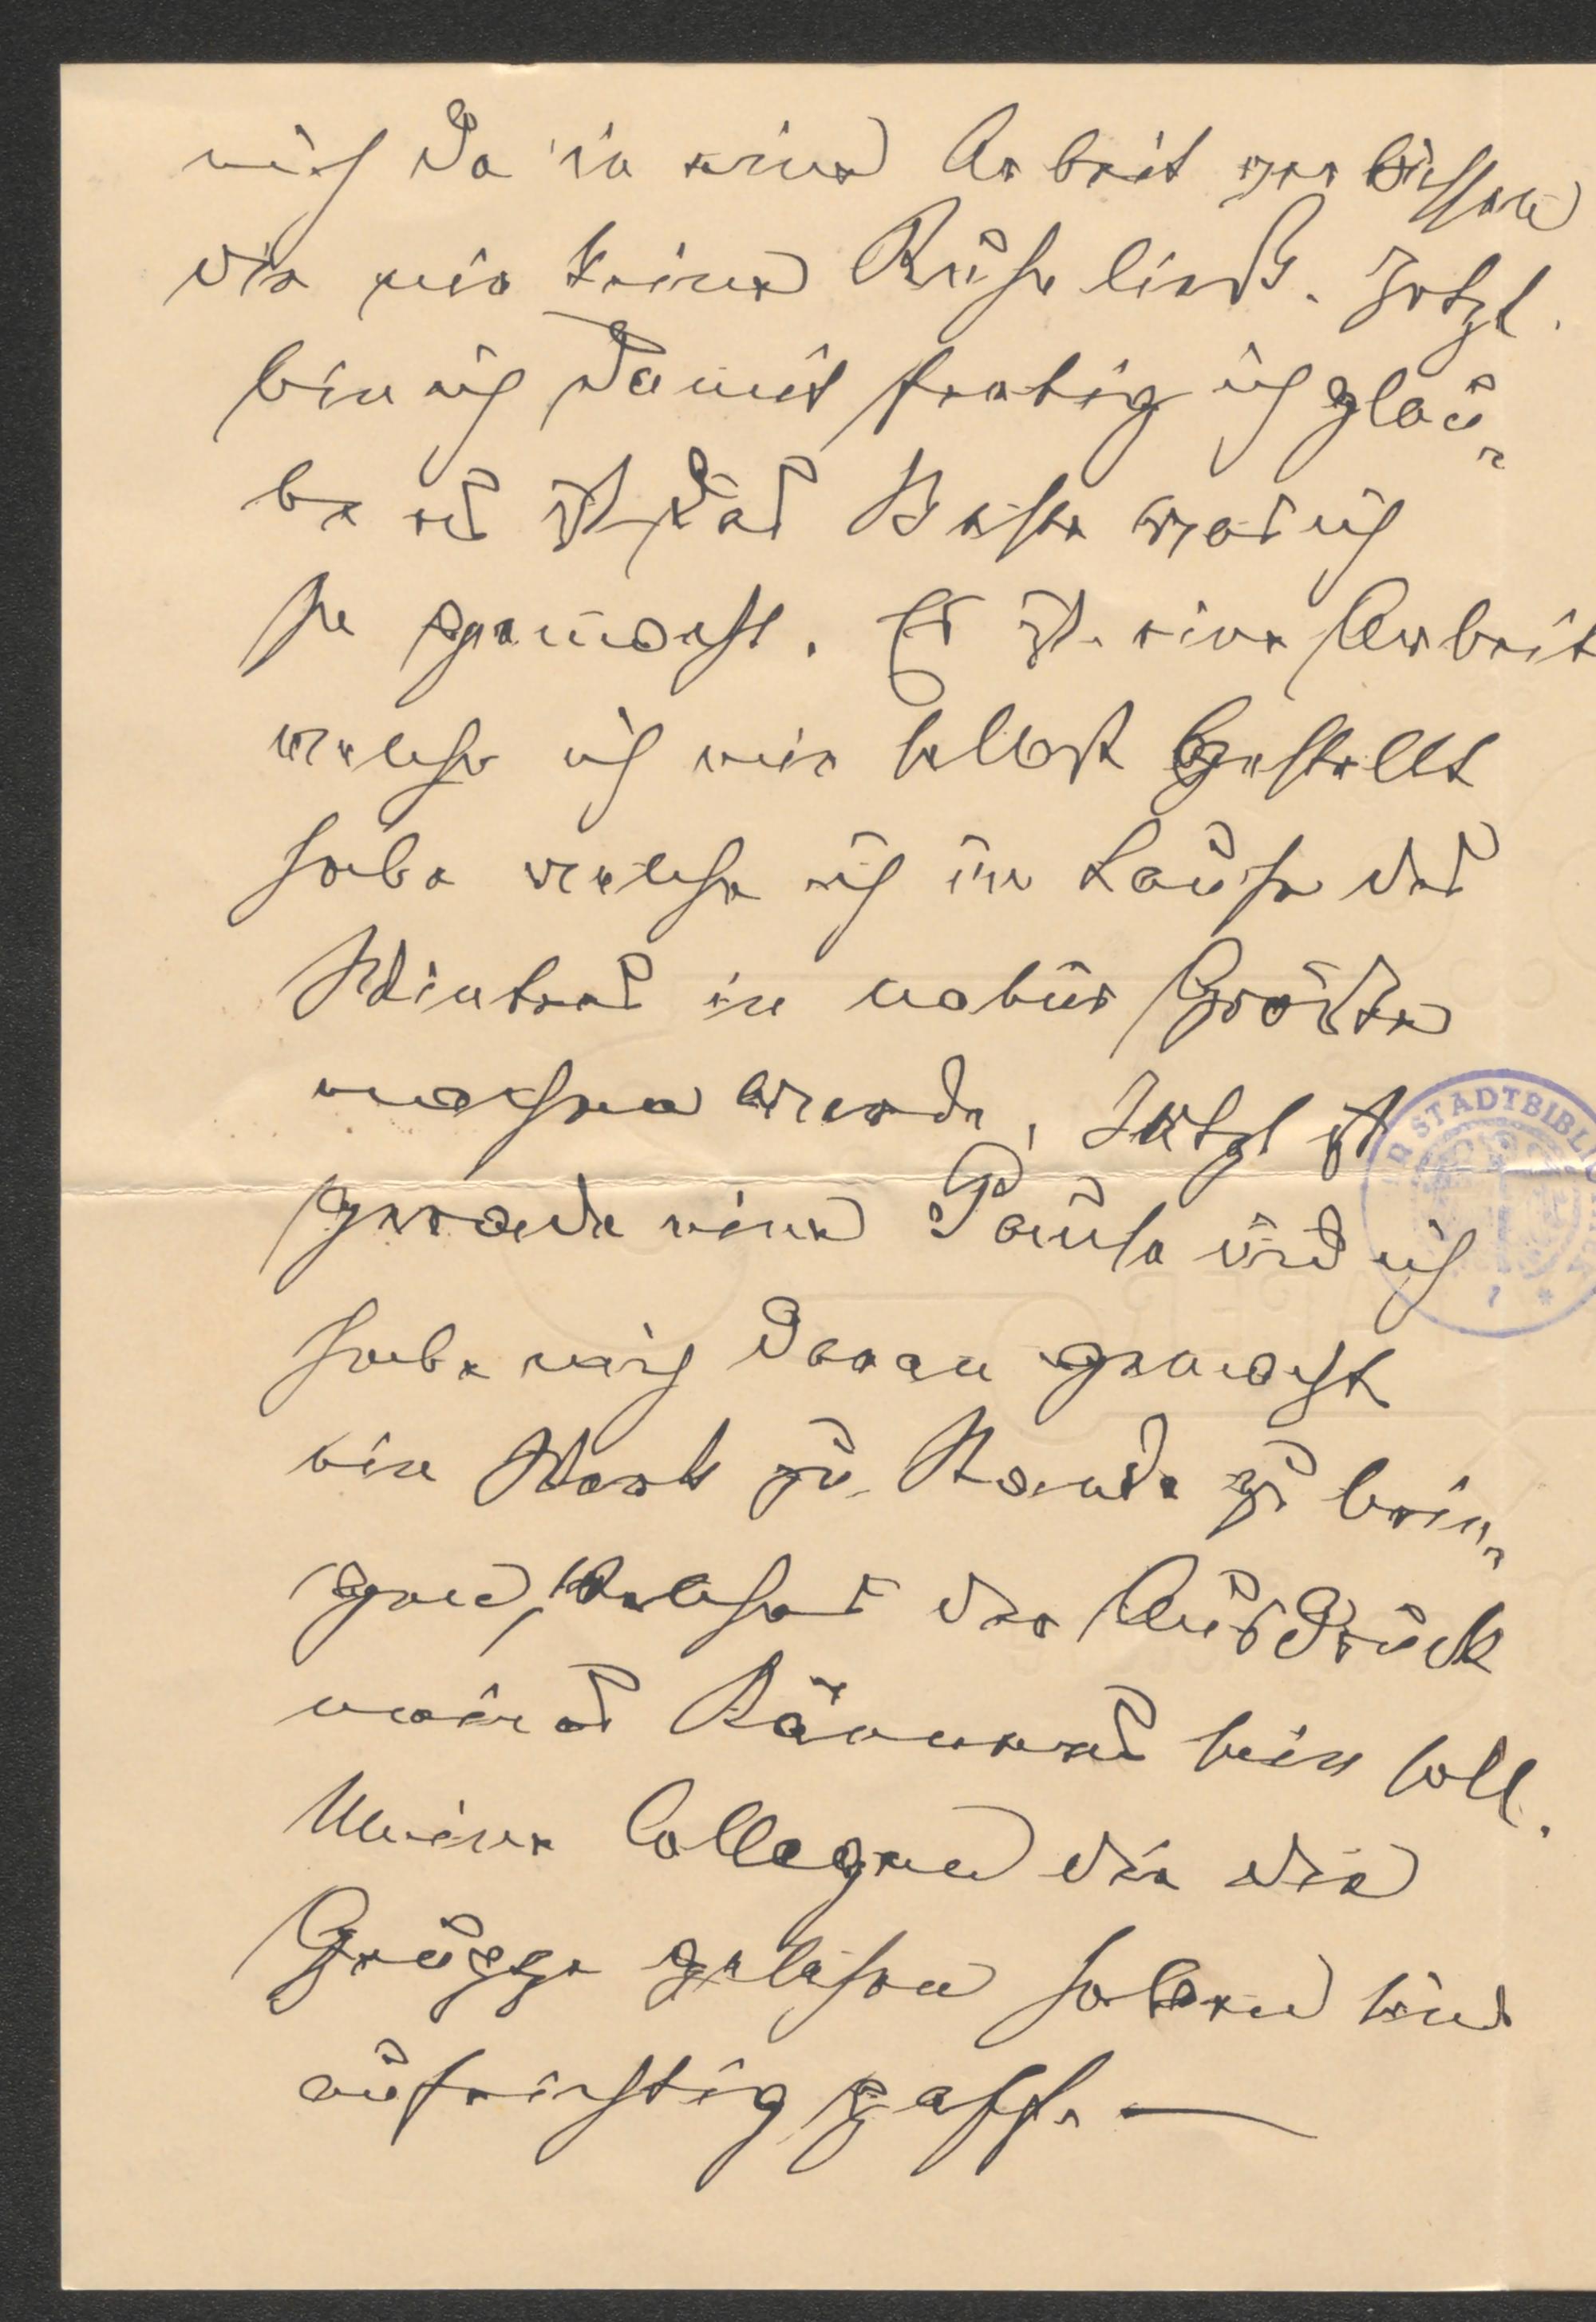 mich da in eine Arbeit verbissen
die mir keine Ruhe ließ. Jetzt.
bin ich damit fertig ich glau-
be es ist das Beste was ich
je gemacht. Es ist eine Arbeit
welche ich mir selbst gestellt
habe welche ich im Laufe des
Winters in natur Größe
machen werde, Jetzt ist
gerade eine Pause und ich
habe mich daran gemacht
ein Werk zu Stande zu brin-
gen, welches der Ausdruck
meines Könnens sein soll.
Meine Collegen die die
Gruppe gesehen haben sind
aufrichtig paff. —
STADTBIBLI